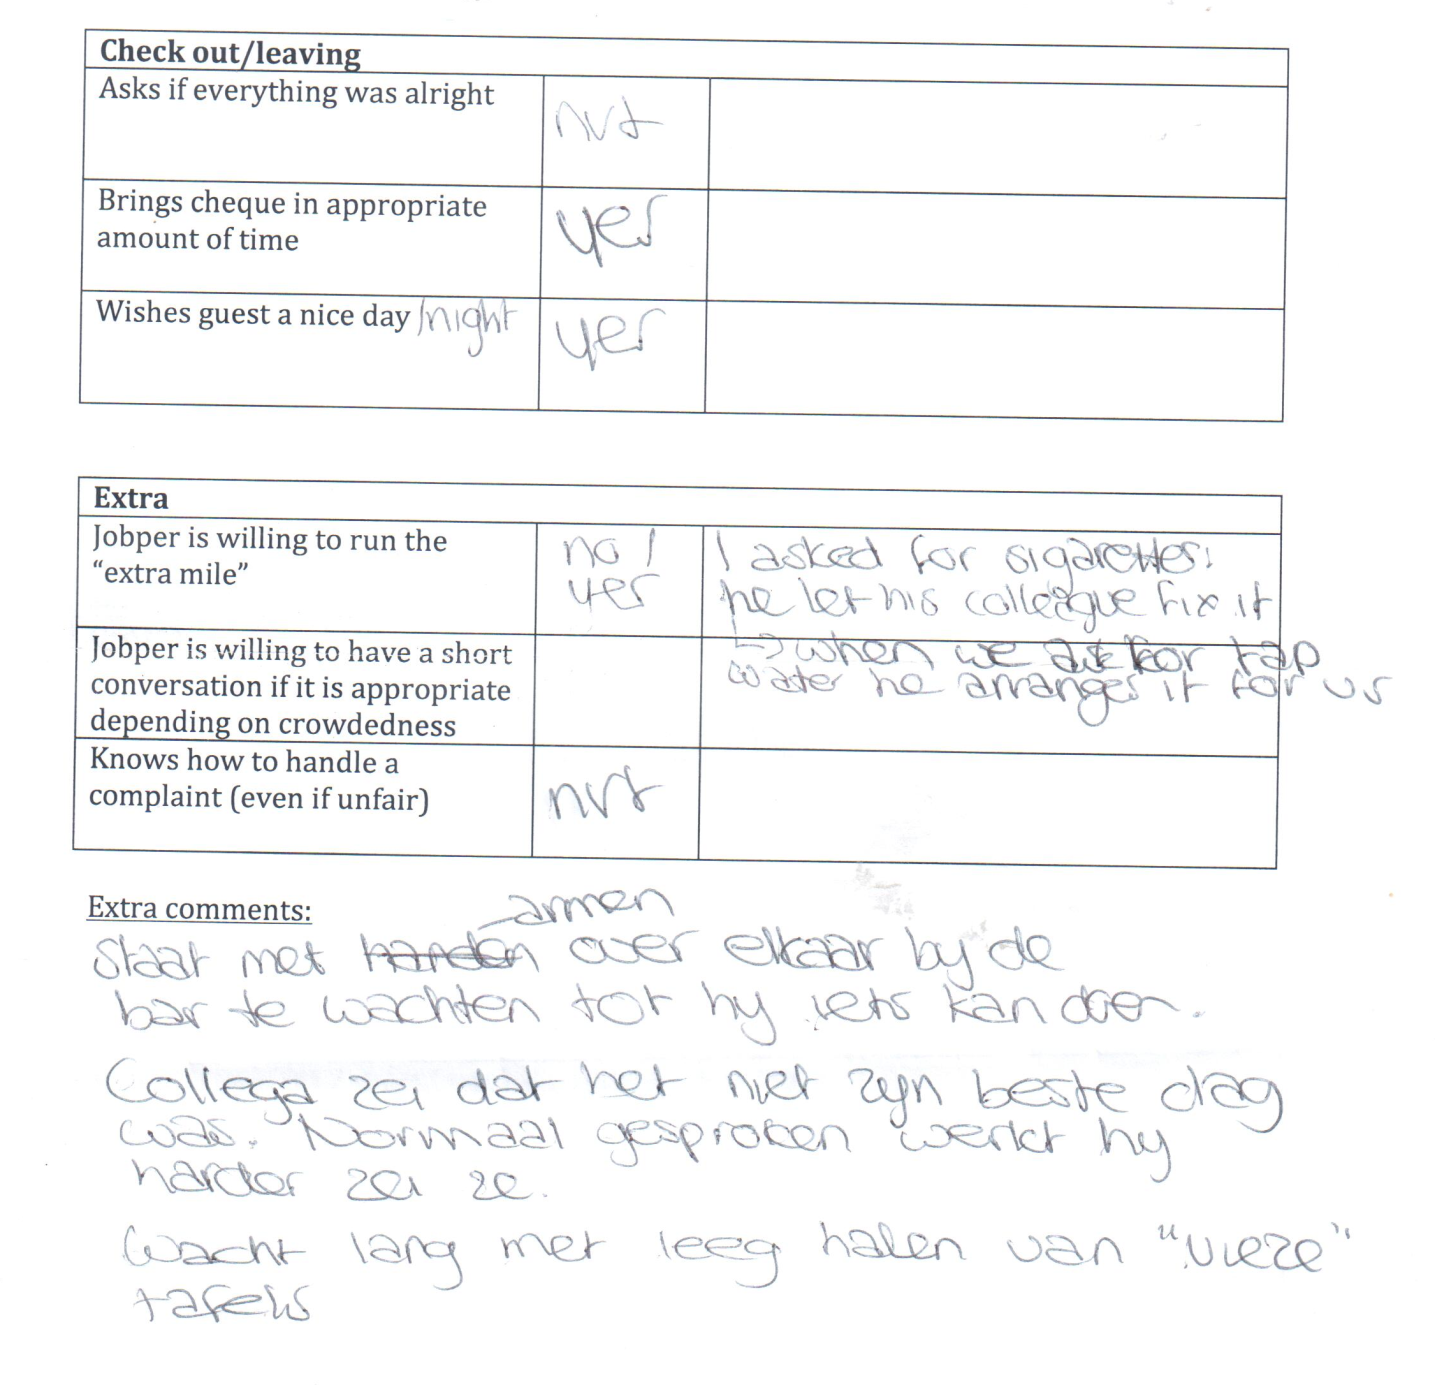 Check out/leaving
Asks if everything was alright
nvt
Brings cheque in appropriate
amount of time
yes
Wishes guest a nice day /night
yes
Extra
Jobper is willing to run the
“extra mile”
no /
yes
I asked for sigarettes:
he let his colleague fix it
Jobper is willing to have a short
conversation if it is appropriate
depending on crowdedness
↳ when we ask for tap
water he arranges it for us
Knows how to handle a
complaint (even if unfair)
nvt
Extra comments:
armen
Staat met handen over elkaar by de
bar te wachten tot hy iets kan doen.
Collega zei dat het niet zyn beste dag
was. Normaal gesproken werkt hy
harder zei ze.
Wacht lang met leeg halen van “vieze”
tafels